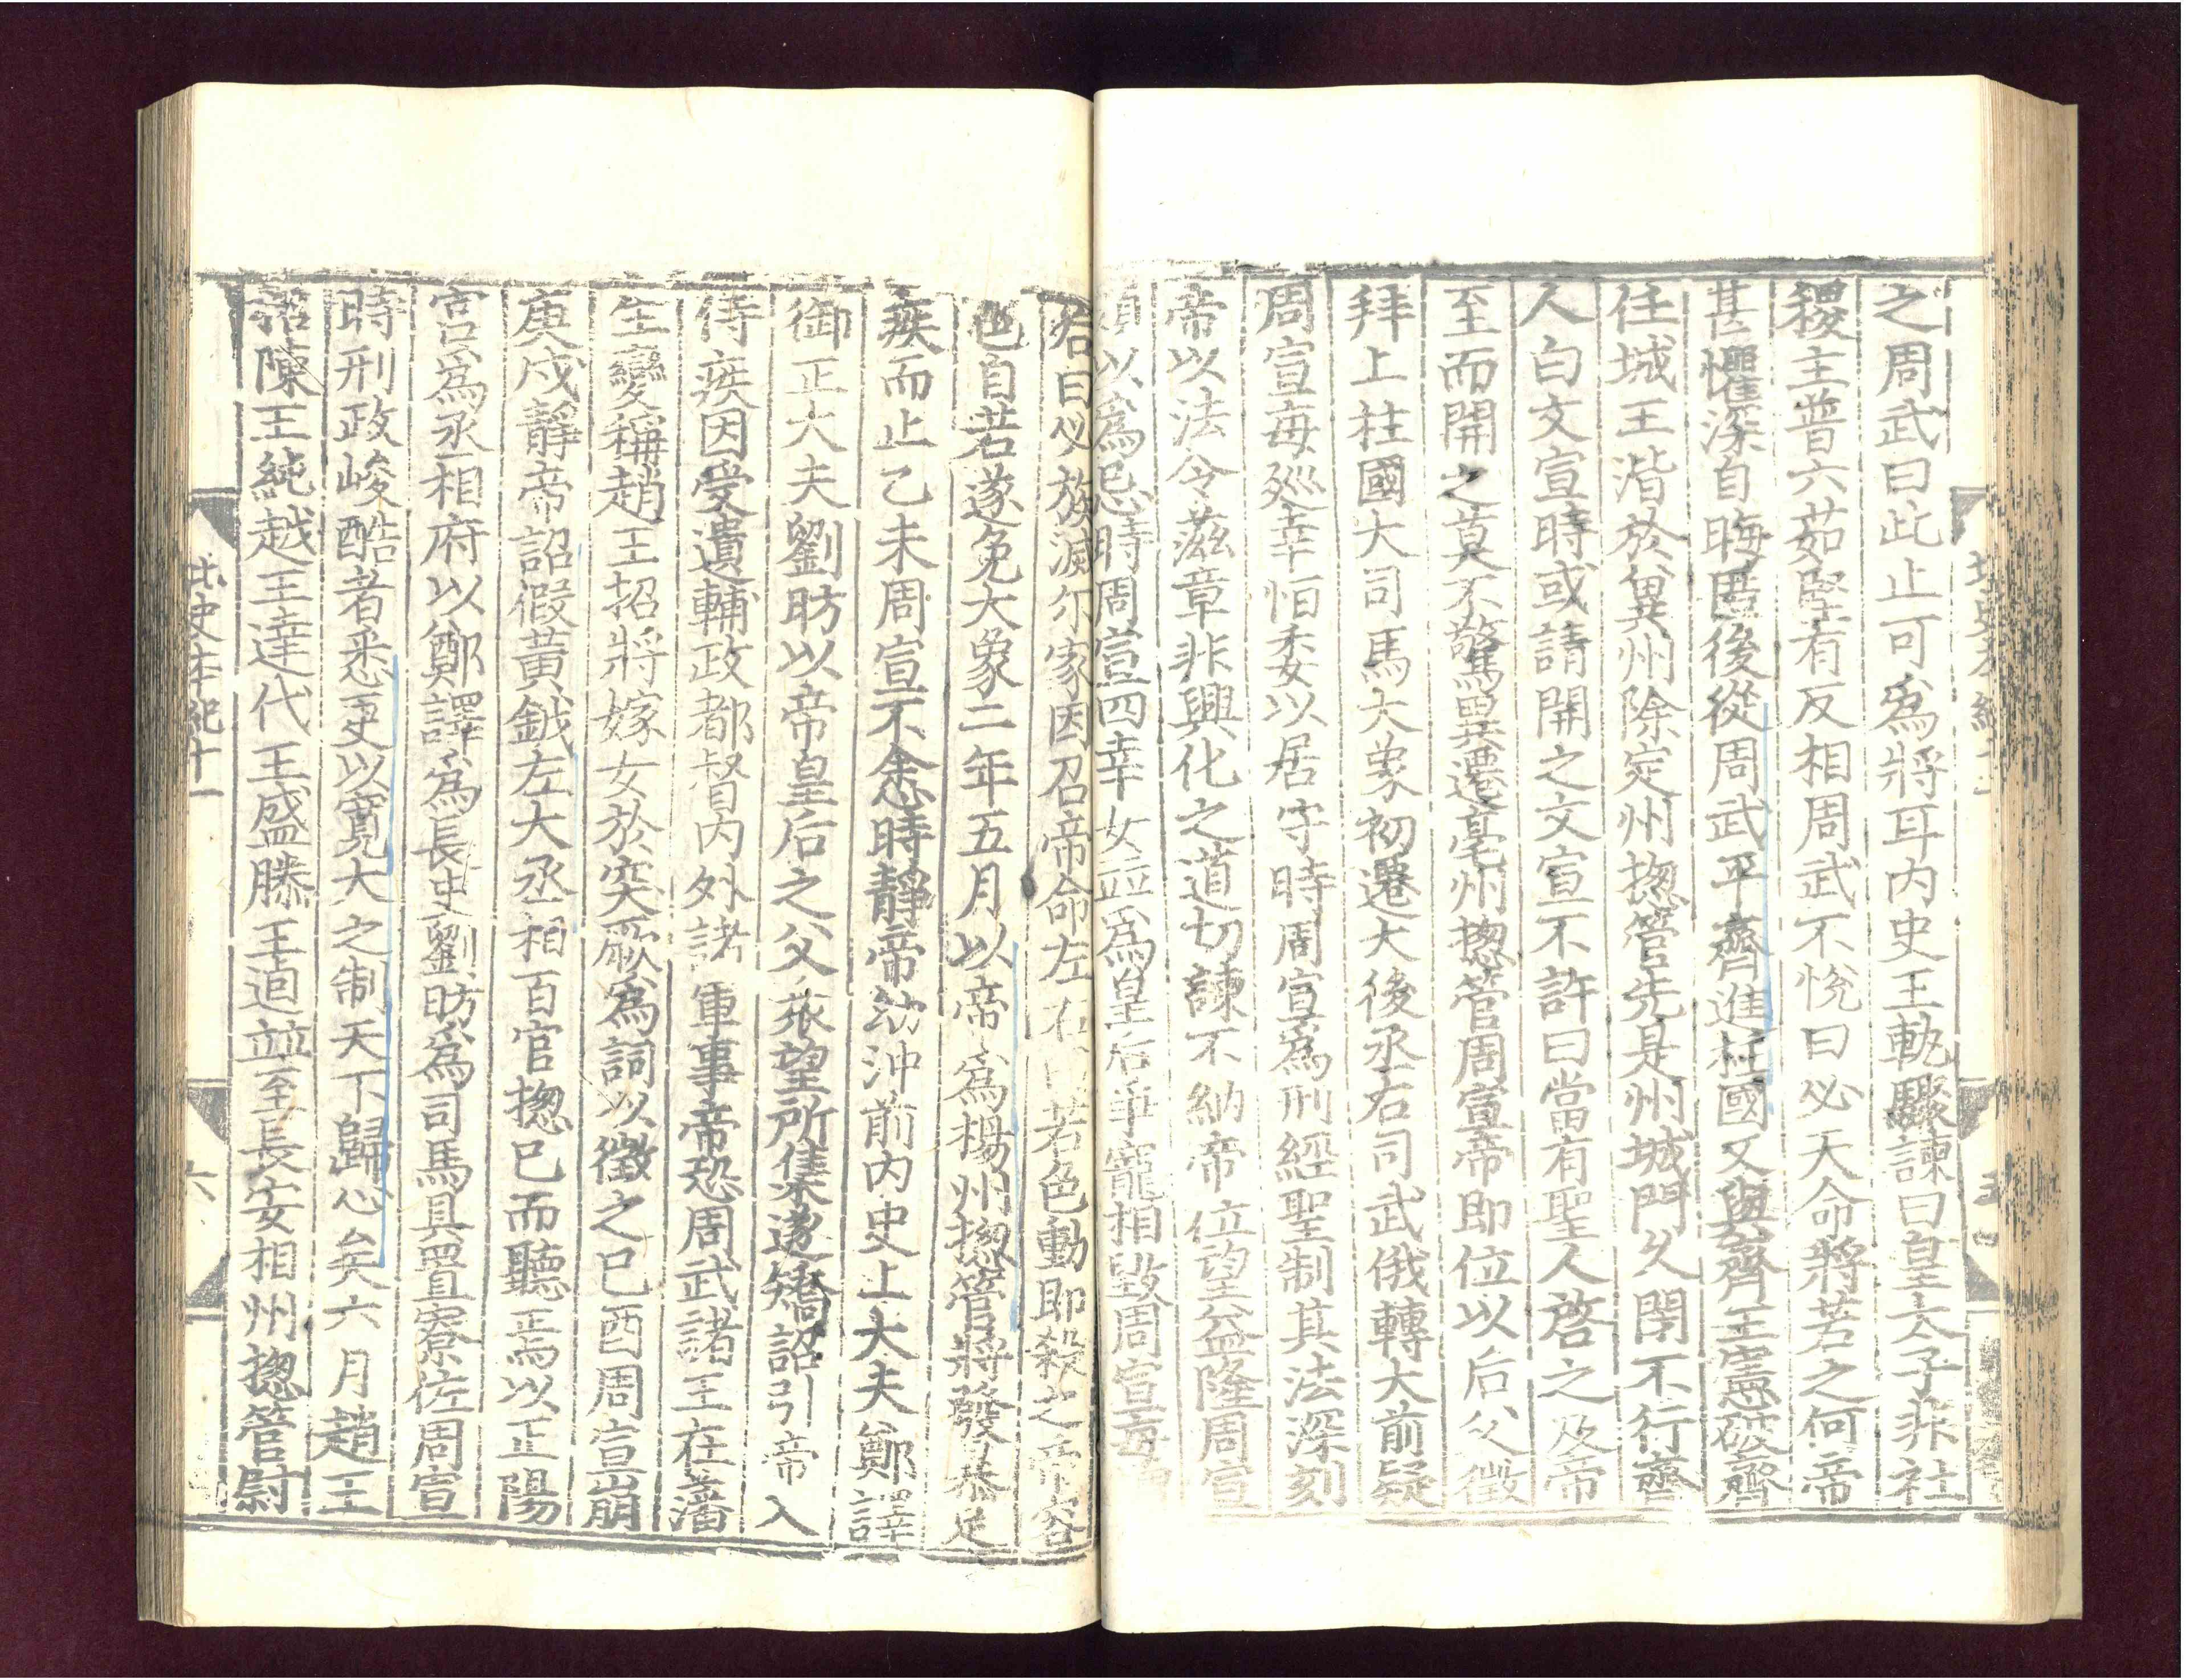 之周武曰此止可爲將耳內史王軌驟諫曰皇太子非社
稷主普六茹堅有反相周武不悅曰必天命將若之何帝
甚懼深自晦匿後從周武平齊進柱國又與齊王憲破齊
任城王湝於兾州除定州揔管先是州城門久閉不行齊
人白文宣時或請開之文宣不許曰當有聖人啓之及帝
至而開之莫不驚異遷亳州揔管周宣帝即位以后父徵
拜上柱國大司馬大象初遷大後丞右司武俄轉大前疑
周宣每廵幸恒委以居守時周宣爲刑經聖制其法深刻
帝以法令滋章非興化之道切諫不納帝位望益隆周宣
頗以爲忌時周宣四幸女並爲皇后爭寵相毀周宣每
后曰必族滅尔家因召帝命左右曰若色動即殺之帝容
色自若遂免大象二年五月以帝爲楊州揔管將發暴足
疾而止乙未周宣不悆時靜帝幼沖前內史上大夫鄭譯
御正大夫劉昉以帝皇后之父衆望所集遂矯詔引帝入
侍疾因受遺輔政都督內外諸軍事帝恐周武諸王在藩
生變稱趙王招將嫁女於突厥爲詞以徵之巳酉周宣崩
庚戌靜帝詔假黃鉞左大丞相百官揔巳而聽焉以正陽
宮爲丞相府以鄭譯爲長史劉昉爲司馬具置寮佐周宣
時刑政峻酷者悉更以寬大之制天下歸心矣六月趙王
招陳王純越王達代王盛滕王逌並至長安相州揔管尉
北史本紀十一
六